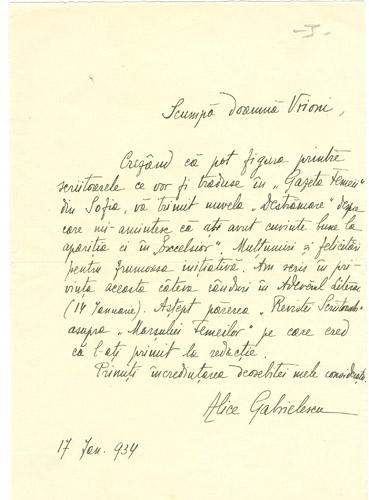 -I-
Scumpă doamnă Vrioni,
Crezând că pot figura printre
scriitoarele ce vor fi traduse în „Gazeta Femeii"
din Sofia, vă trimit nuvela „Destrămare" despre
care mi-amintesc că ați avut cuvinte bune la
apariția ei în „Excelsior". Mulțumiri și felicitări
pentru frumoasa inițiativă. Am scris în pri-
vința aceasta câteva rânduri în Adevĕrul Literar
(14 Ianuarie). Aștept părerea „Revistei Scriitoarelor"
asupra „Marșului Femeilor" pe care cred
că l-ați primit la redacție.
Primiți încredințarea deosebitei mele considerații.
Alice Gabrielescu
17 Jan. 934